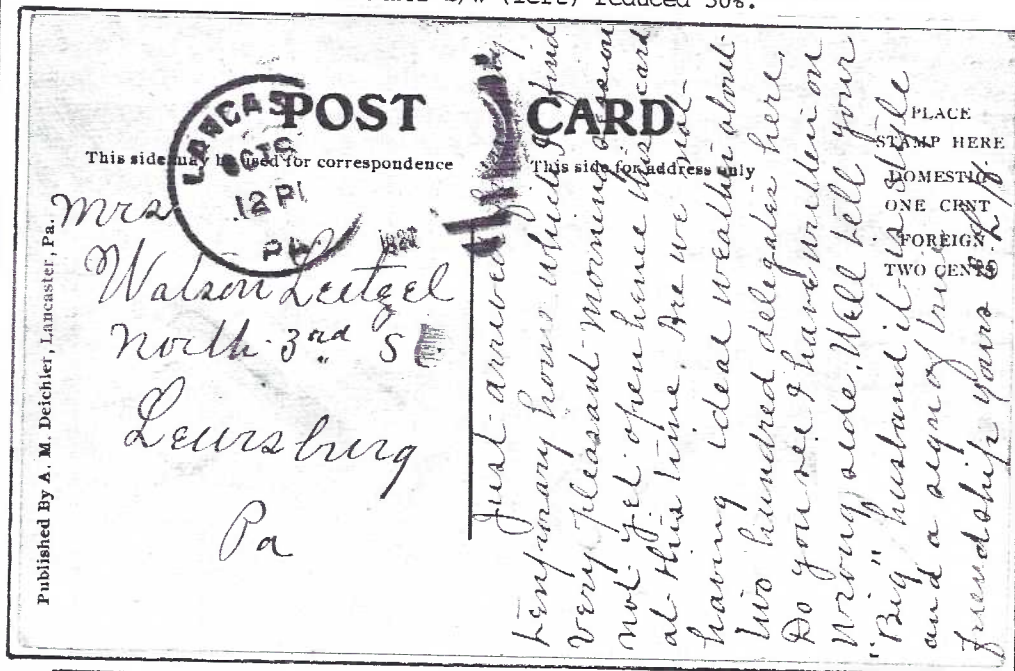 (left) reduced 50%.
POST CARD
This side may be used for correspondence
This side for address only
PLACE
STAMP HERE
DOMESTIC
ONE CENT
FOREIGN
TWO CENTS
LANCAS
OCT 6
12 PM
PA
Published By A. M. Deichler, Lancaster, Pa.
Mrs
Watson Leitzel
North 3rd S
Lewisburg
Pa
Just arrived
temporary home which I find
very pleasant morning session
not yet open hence this card
at this time. Are we not
having ideal weather about
two hundred delegates here.
Do you see I have written on
wrong side. Well tell your
"Big" husband it is style
and a sign of true
friendship yours